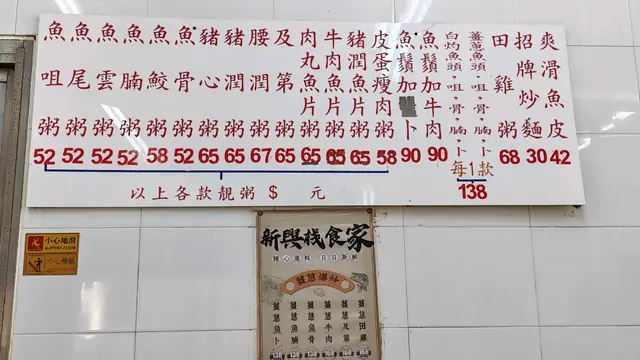 魚咀粥 52
魚尾粥 52
魚雲粥 52
魚腩粥 52
魚鮫粥 58
魚骨粥 52
豬心粥 65
豬潤粥 65
腰潤粥 67
及第粥 65
肉丸魚片粥 65
牛肉魚片粥 65
豬潤魚片粥 65
皮蛋瘦肉粥 58
魚鬚加卜 90
魚鬚加牛肉 90
白灼魚頭，咀，骨，腩，卜
薑蔥魚頭，咀，骨，腩，卜
每1款
138
田雞粥 68
招牌炒麵 30
爽滑魚皮 42
以上各款靚粥 $ 元
小心地滑
SLIPPERY FLOOR
小心梯級
新興棧食家
日日新鮮
薑蔥魚卜
薑蔥魚腩
薑蔥魚骨
薑蔥牛肉
薑蔥及第
薑蔥田雞